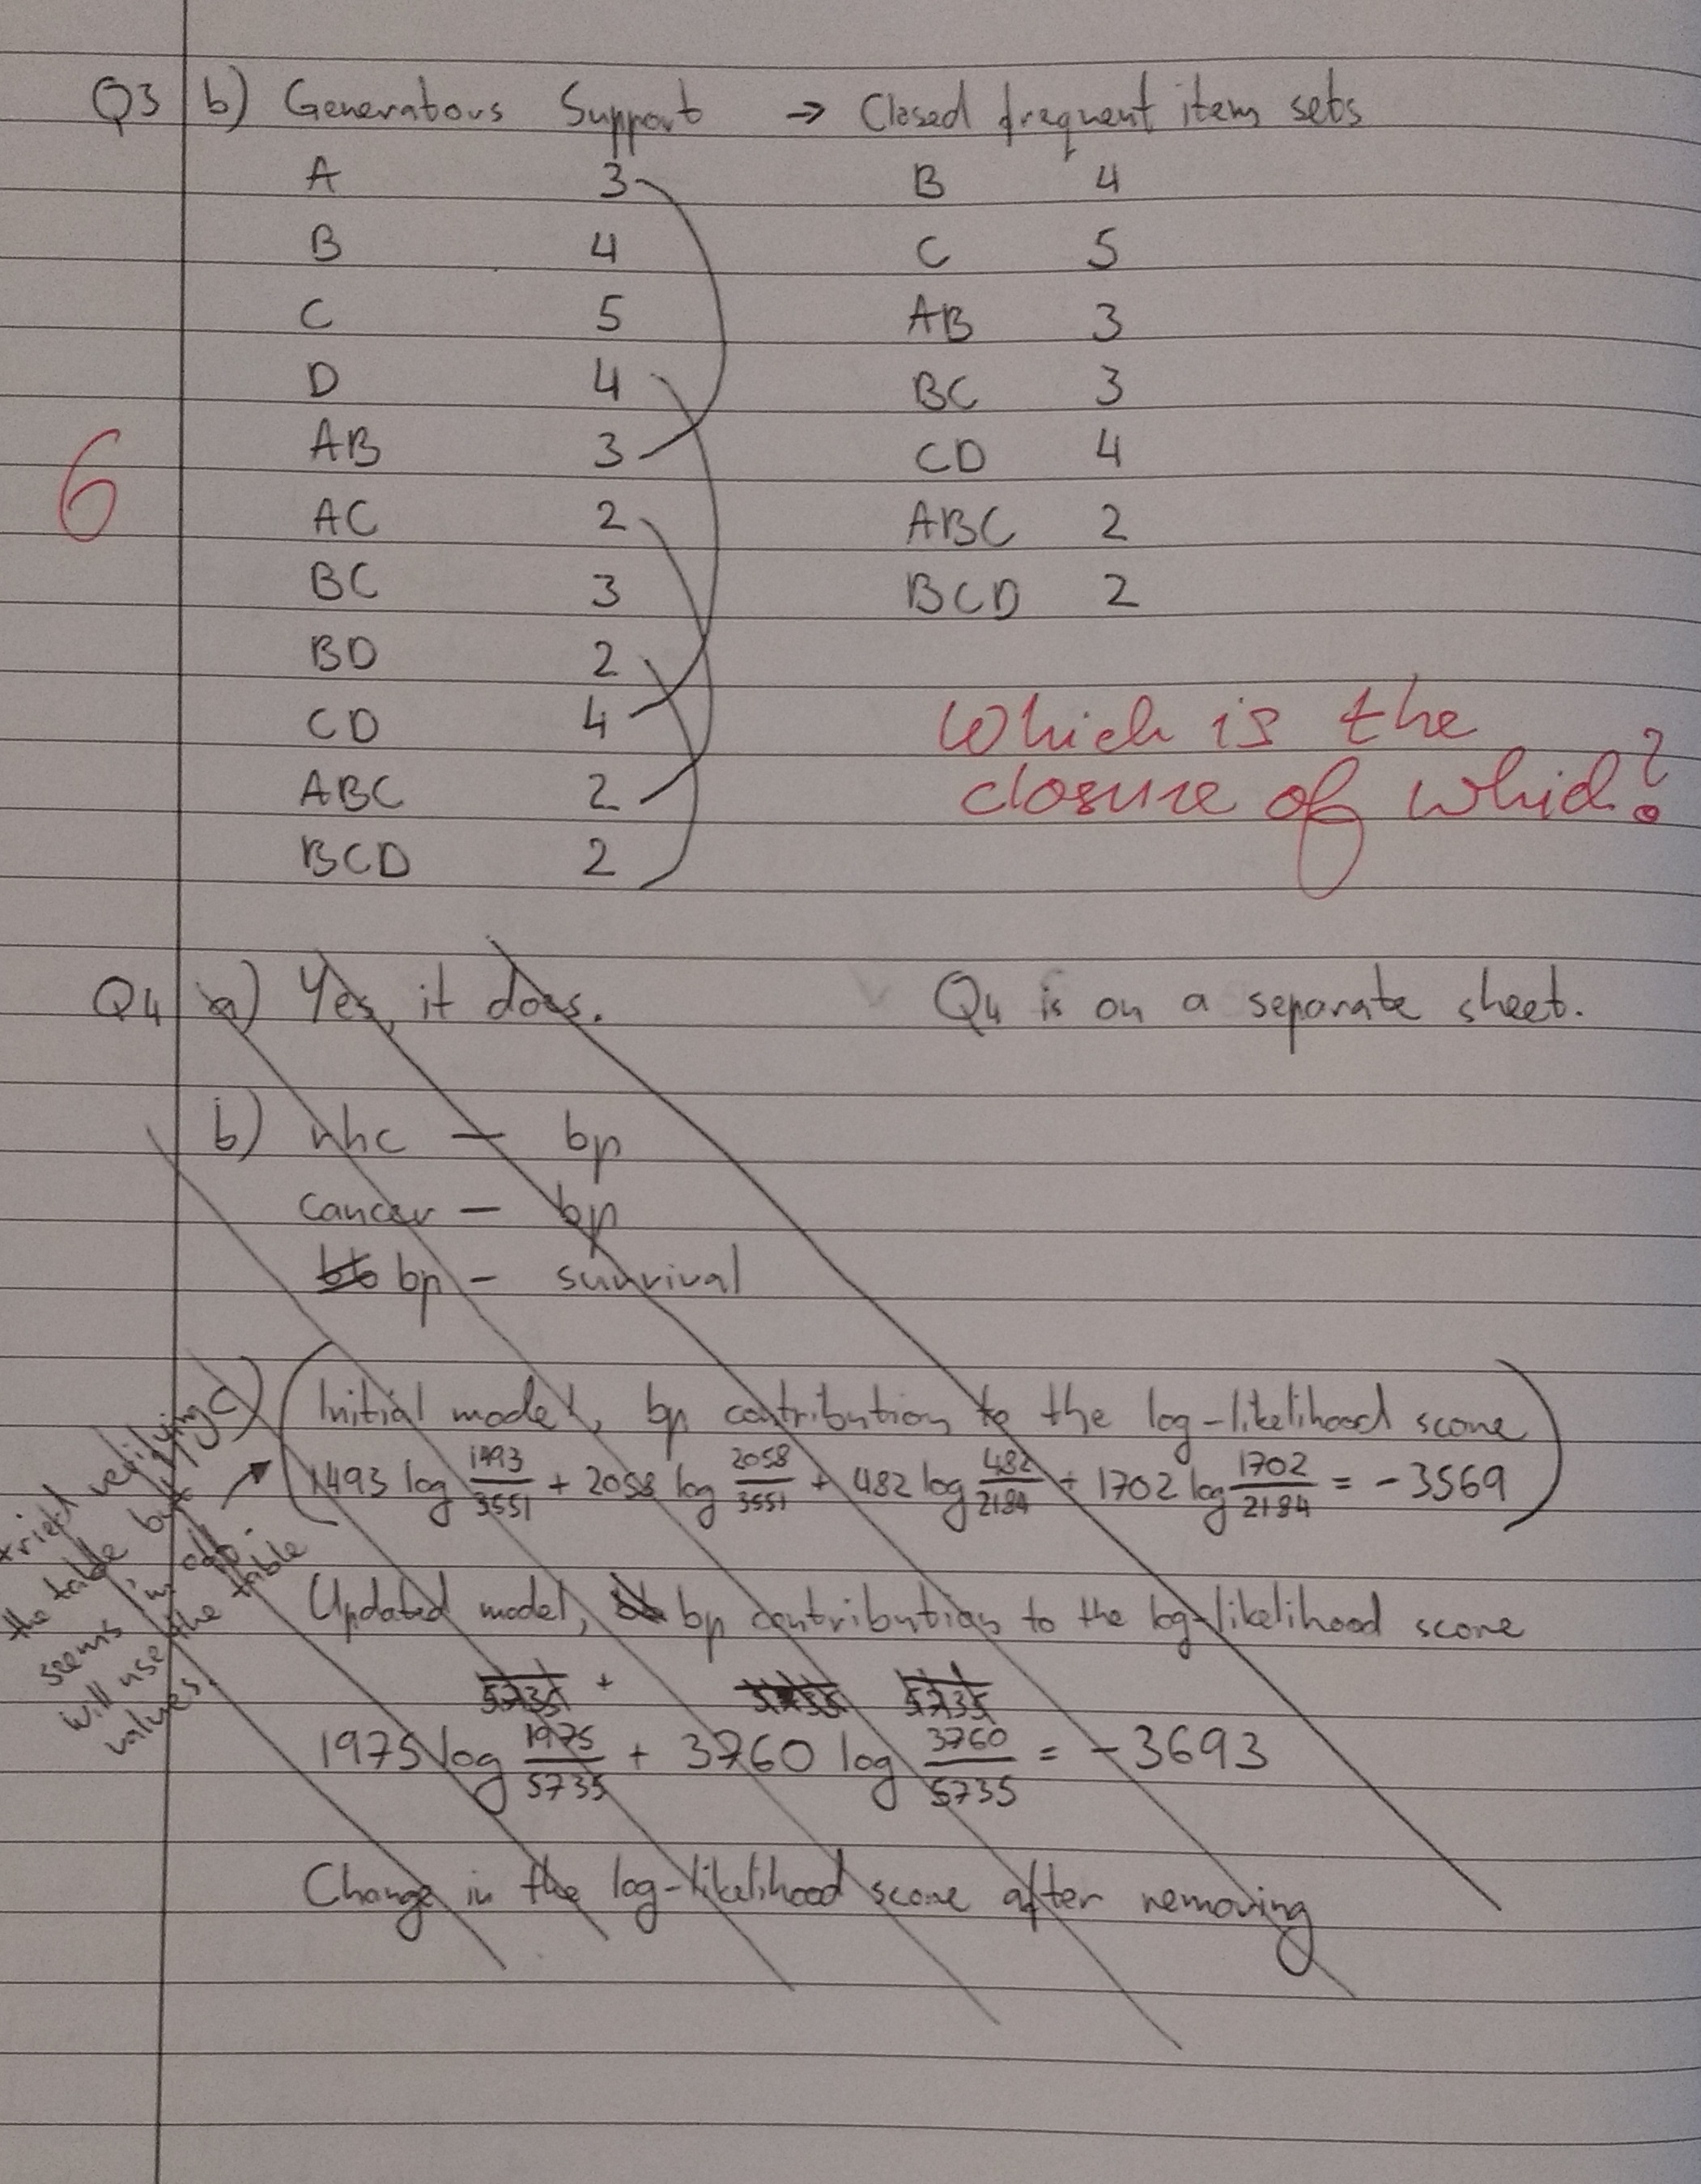 Q3 b) Generators Support → Closed frequent item sets
A 3 B 4
B 4 C 5
C 5 AB 3
D 4 BC 3
AB 3 CD 4
6
AC 2 ABC 2
BC 3 BCD 2
BD 2
CD 4
ABC 2
BCD 2
Which is the
closure of which?
Q4 a) Yes, it does. Q4 is on a separate sheet.
b) rhc — bp
cancer — bp
bp — survival
c) (Initial model, bp contribution to the log-likelihood score
1493 log 1493/3551 + 2058 log 2058/3551 + 482 log 482/2184 + 1702 log 1702/2184 = -3569)
tried verifying
the table but
seems in odd.
will use the table
values.
Updated model, bp contribution to the log-likelihood score
5735 + 5735 5735
1975 log 1975/5735 + 3760 log 3760/5735 = -3693
Change in the log-likelihood score after removing